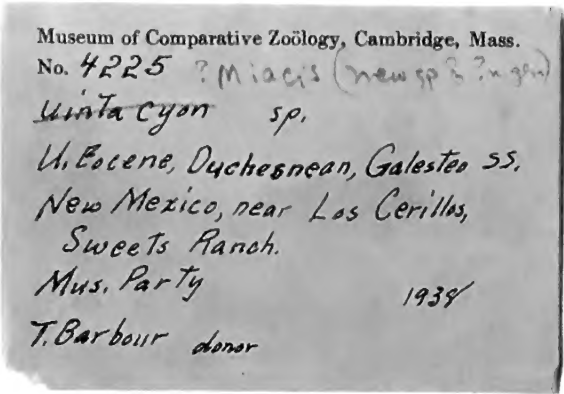 Museum of Comparative Zoölogy, Cambridge, Mass.
No. 4225 ? Miacis (new sp? ?n gen)
Uintacyon sp.
U. Eocene, Duchesnean, Galesteo SS.
New Mexico, near Los Cerillos,
Sweets Ranch.
Mus. Party 1938
T. Barbour donor